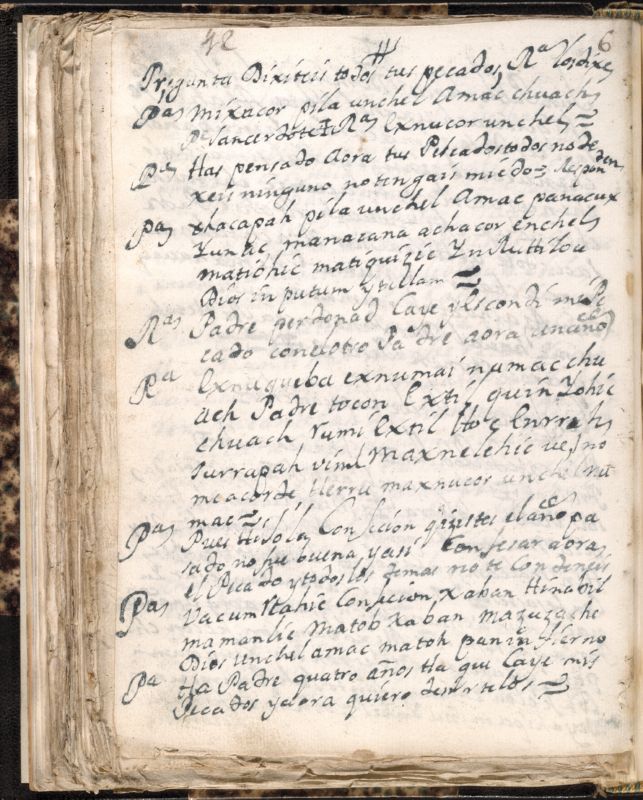 42
6
Prigunta Dixiteis todos tus pecados Ra Yosdxe
Pa mixacor pila unchel Amac chuach
Pe Sancerdote Ra Exnucor unchel
Pe Has pensado Aora tus Pescados todos no de
xeis ninguno no tengais miedo Respon den
pa xhacapah pila unchel Amac panacux
Yuntic manacana achacor enchel
matiohic matiquizic Yn
Dios in putum ytillam
Ra Padre perdonad Caye yescondi me Pe
cado conelotro Padre aora un año
Ra Exnuqueba exnumai numac chu
ach Padre tocon Extij quin Yohic
chuach rumi Extil
vinl Maxnelchic
maxnucor unchel nu
mac
Pa Pues tu sola Conficion qizistes el año pa
sado no fue buena yasi Confesar aora
el Pecado ytodos los demas no te Condeneis
Pa Vacum xtahic Conficion xaban Hinabil
mamanlic Matob xaban mazuzache
Dios unchel amac matoh panin
Pa Ha Padre quatro años Ha qui Caye mis
Pecados yaora quiero desirtelos